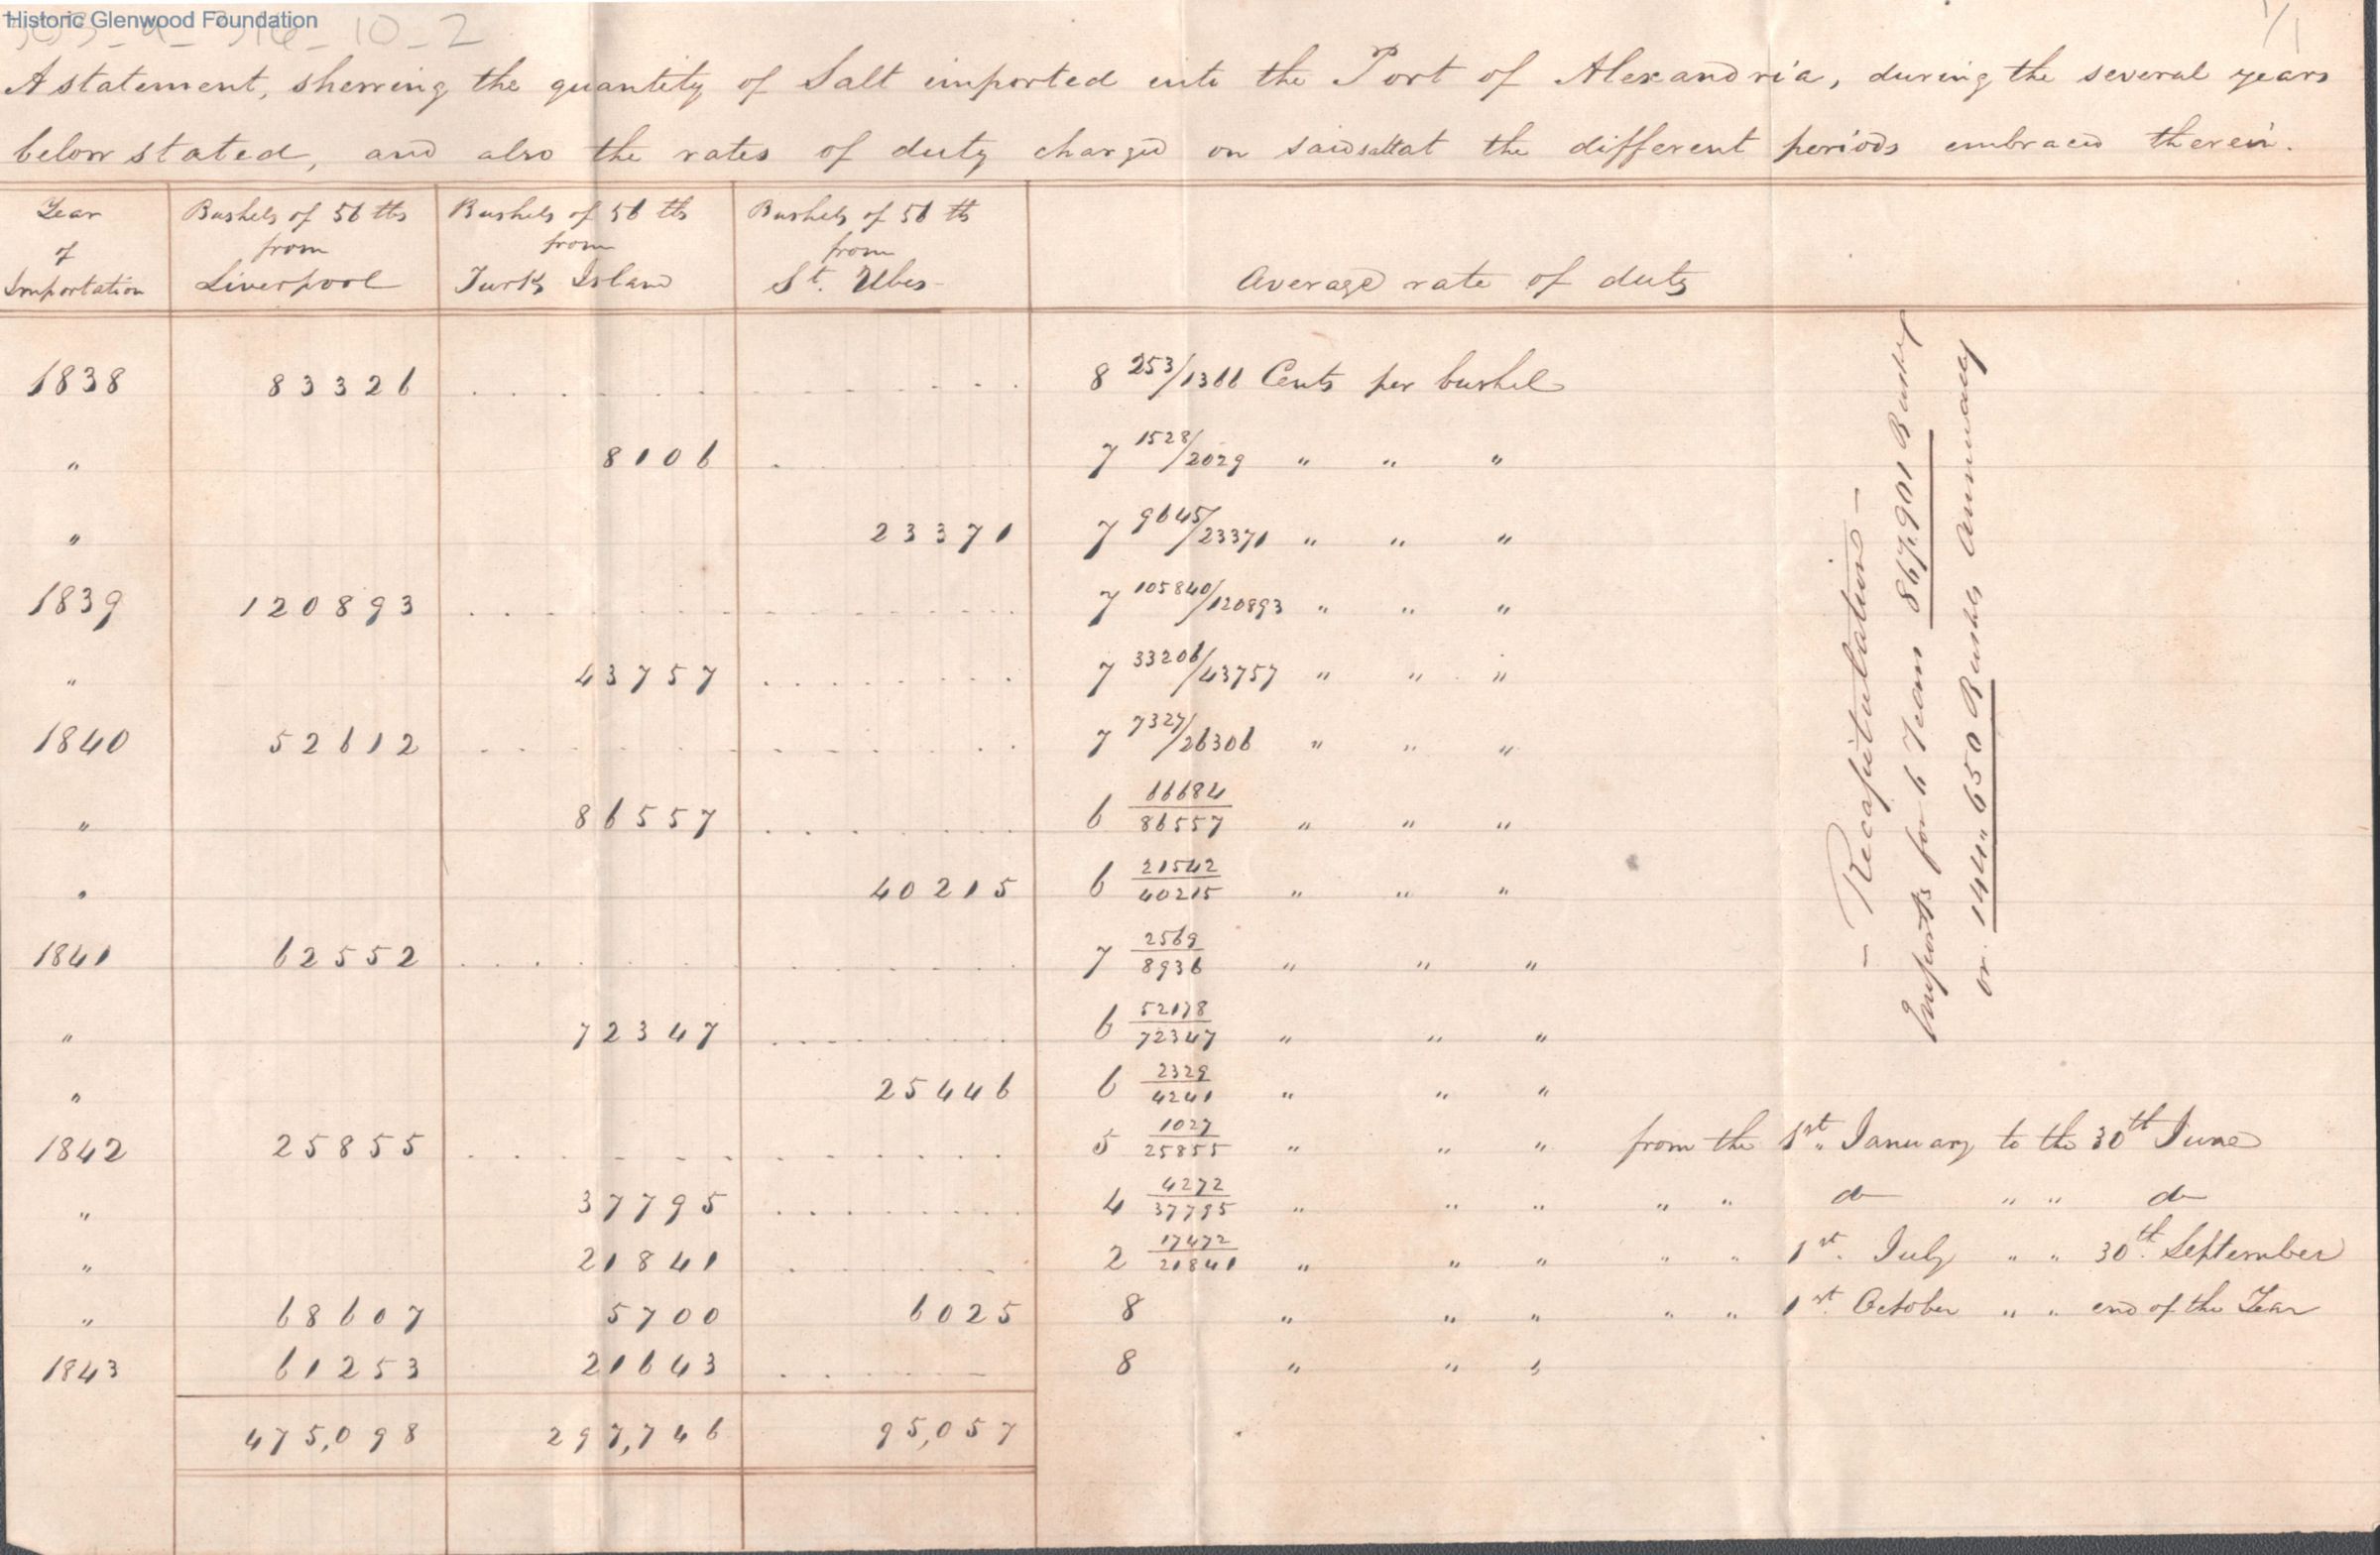 Historic Glenwood Foundation
1/1
A statement, shewing the quantity of Salt imported into the Port of Alexandria, during the several years
below stated, and also the rates of duty charged on said salt at the different periods embraced therein.
Year of Importation | Bushels of 56 lbs from Liverpool | Bushels of 56 lbs from Turks Island | Bushels of 56 lb from St. Ubes | Average rate of duty
1838 83326 8 253/1366 Cents per bushel
" 8106 7 1528/2029 " " "
" 23371 7 9645/23371 " " "
1839 120893 7 105840/120893 " " "
" 43757 7 33206/43757 " " "
1840 52612 7 7327/26306 " " "
" 86557 6 66684/86557 " " "
" 40215 6 21542/40215 " " "
1841 62552 7 2569/8936 " " "
" 72347 6 52178/72347 " " "
" 25446 6 2329/4241 " " "
1842 25855 5 1027/25855 " " " from the 1st January to the 30th June
" 37795 4 4272/37795 " " " " " do " " do
" 21841 2 17472/21841 " " " " " 1st July " " 30th September
" 68607 5700 6025 8 " " " " " 1st October " " end of the Year
1843 61253 21643 8 " " "
475,098 297,746 95,057
- Recapitulation -
Imports for 6 Years 867,901 Bushels
or 144,,650 Bushels Annually